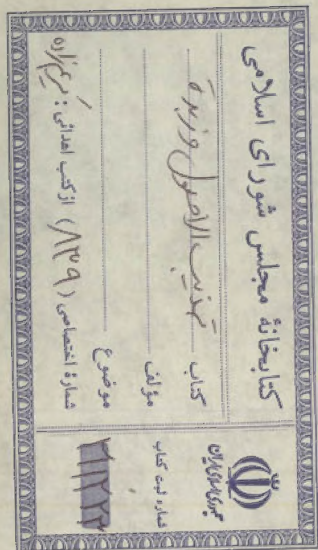 کتابخانهٔ مجلس شورای اسلامی
کتاب تهذیب الاصول و زبدة
مؤلف
موضوع
شمارهٔ اختصاصی ( ۸۳۹ ) از کتب اهدائی : کریم‌زاده
جمهوری اسلامی ایران
شماره ثبت کتاب